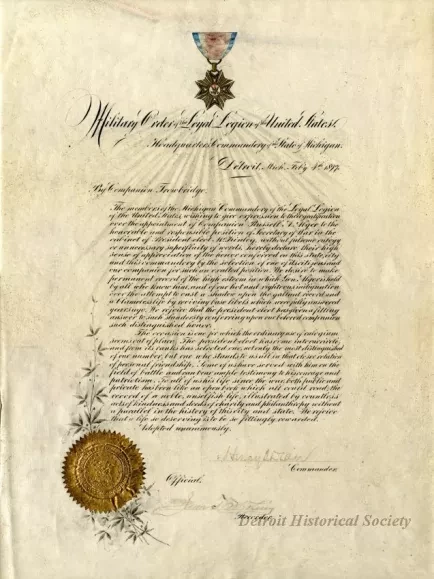 Military Order of the Loyal Legion of the United States.
Headquarters Commandery of the State of Michigan.
Detroit, Mich. Feby 4th 1897.
By Companion Trowbridge.
The members of the Michigan Commandery of the Loyal Legion
of the United States, wishing to give expression to their gratification
over the appointment of Companion Russell A. Alger to the
honorable and responsible position of Secretary of War in the
cabinet of President elect McKinley, without fulsome flattery
or unnecessary superfluity of words, hereby declare their high
sense of appreciation of the honor conferred on this state, city
and this commandery by the selection of one of its esteemed
our companion for such an exalted position. We desire to make
permanent record of the high esteem in which Gen. Alger is held
by all who know him, and of our hot and righteous indignation
over the attempt to cast a shadow upon the gallant record and
a blameless life by reviving base libels which were fully answered
years ago. We rejoice that the president elect has given a fitting
answer to such slanders by conferring upon our beloved companion
such distinguished honor.
The occasion is one for which the ordinary use of eulogium
seems out of place. The president elect has come into our circle,
and from its ranks has selected one, not only the most distinguished
of our number, but one who stands to us all in that close relation
of personal friendship. Some of us have served with him on the
field of battle and can bear ample testimony to his courage and
patriotism. To all of us his life since the war, both public and
private has been like an open book which all could read; the
record of a noble, unselfish life, illustrated by countless
acts of kindness and deeds of charity and philanthropy without
a parallel in the history of this city and state. We rejoice
that a life so deserving is to be so fittingly rewarded.
Adopted unanimously.
Commander.
Official,
Recorder.
Detroit Historical Society